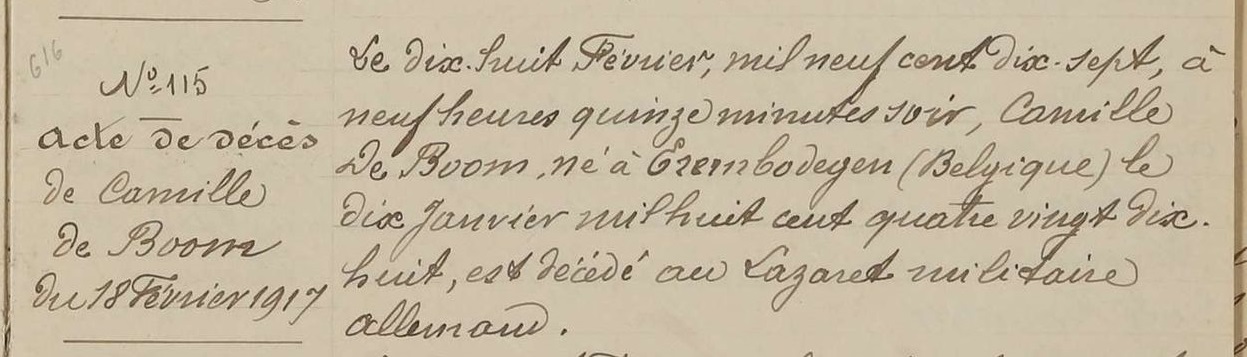 616
Nº 115
acte de décès
de Camille
de Boom
du 18 Février 1917
Le dix-huit Février, mil neuf cent dix-sept, à
neuf heures quinze minutes soir, Camille
De Boom, né à Erembodegen (Belgique) le
dix Janvier mil huit cent quatre vingt dix-
huit, est décédé au Lazaret militaire
allemand.